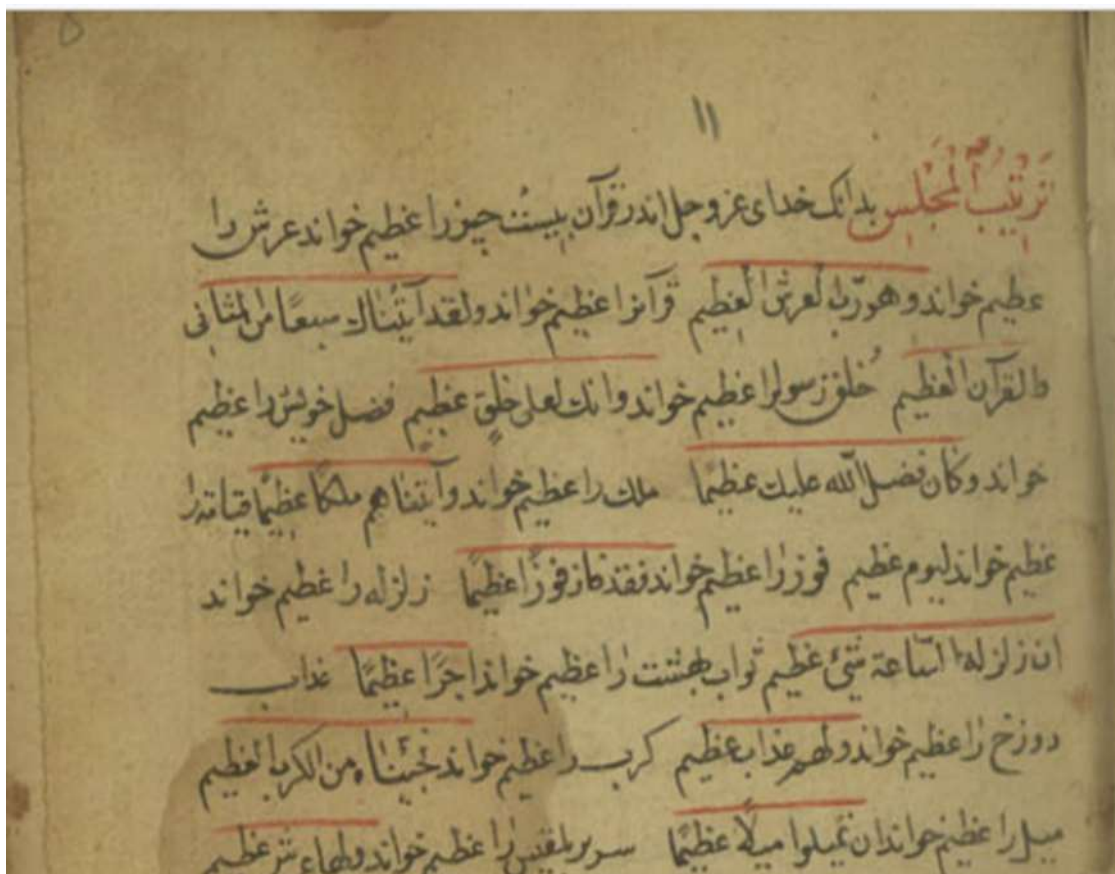 ۵
۱۱
تَرتیبُ المَجْلِسِ بدانک خدای عزوجل اندر قرآن بیست چیز را عظیم خواند عرش را
عظیم خواند وهو ربّ العرش العظیم قرآنرا عظیم خواند ولقد آتیناك سبعًا من المثانی
والقرآن العظیم خُلق رسولرا عظیم خواند وانك لعلی خلقٍ عظیمٍ فضل خویش را عظیم
خواند وکان فضل اللّه علیك عظیمًا ملك را عظیم خواند وآتیناهم ملکًا عظیمًا قیامة را
عظیم خواند لیوم عظیم فوز را عظیم خواند فقد فاز فوزًا عظیمًا زلزله را عظیم خواند
ان زلزلة الساعة شیئ عظیم ثواب بهشت را عظیم خواند اجرًا عظیمًا عذاب
دوزخ را عظیم خواند ولهم عذاب عظیم کرب را عظیم خواند نجّیناه من الکرب العظیم
میل را عظیم خواند ان تمیلوا میلًا عظیمًا سریر بلقیس را عظیم خواند ولها عرش عظیم